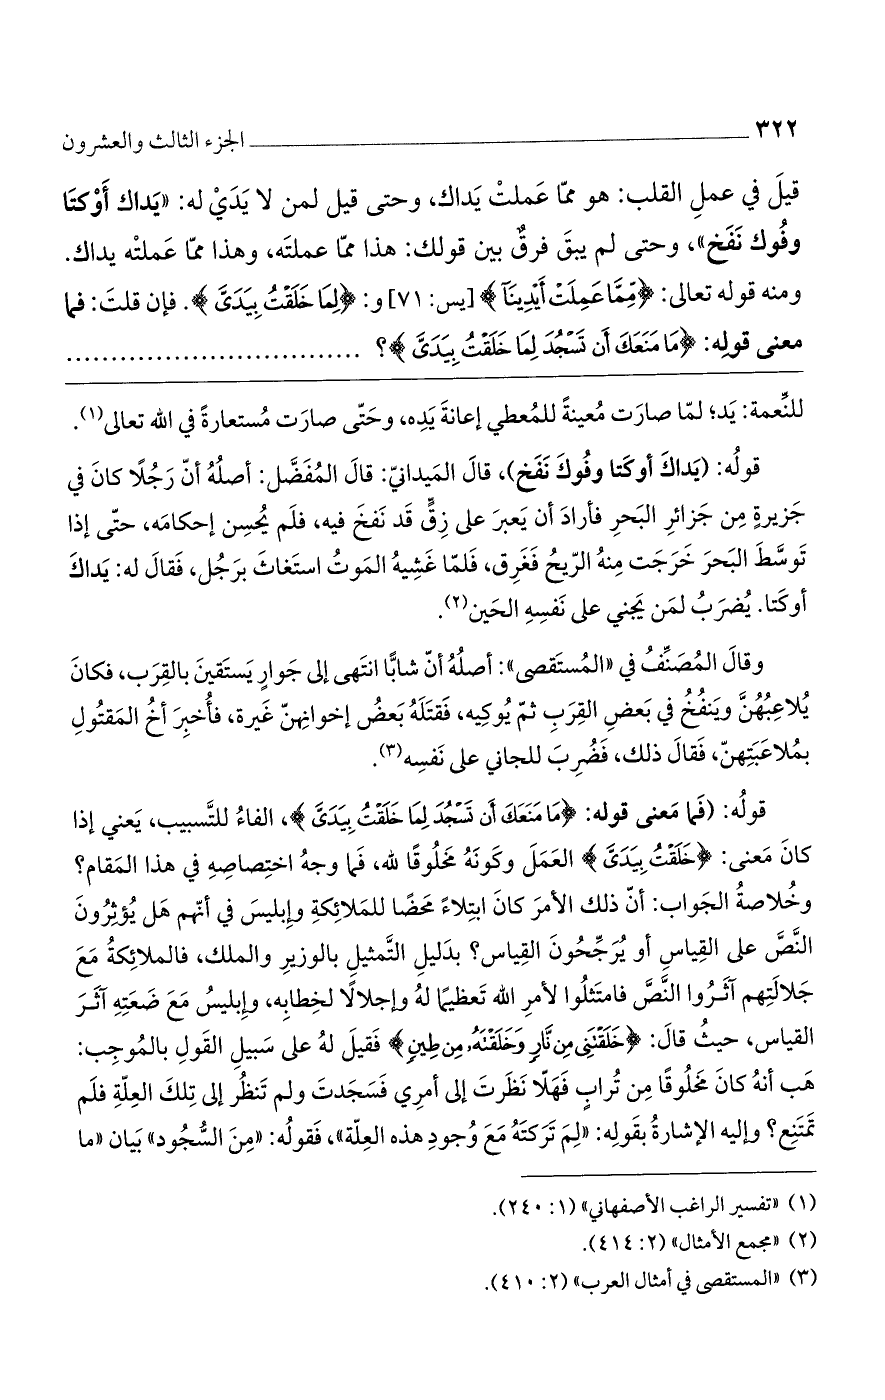 ٣٢٢ الجزء الثالث والعشرون
قيلَ في عملِ القلب: هو ممّا عَملتْ يَداك، وحتى قيل لمن لا يَدَيْ له: «يَداك أَوْكتَا
وفُوك نَفَخ»، وحتى لم يبقَ فرقٌ بين قولك: هذا ممّا عملتَه، وهذا ممّا عَملتْه يداك.
ومنه قوله تعالى: ﴿مِّمَّا عَمِلَتْ أَيْدِينَآ﴾ [يس: ٧١] و: ﴿لِمَا خَلَقْتُ بِيَدَىَّ﴾. فإن قلتَ: فما
معنى قولِه: ﴿مَا مَنَعَكَ أَن تَسْجُدَ لِمَا خَلَقْتُ بِيَدَىَّ﴾؟ ................................
للنِّعمة: يَد؛ لمّا صارَت مُعينةً للمُعطي إعانةَ يَدِه، وحَتّى صارَت مُستعارةً في الله تعالى(١).
قولُه: (يَداكَ أوكَتا وفُوكَ نَفَخ)، قالَ المَيدانيّ: قالَ المُفَضَّل: أصلُهُ أنّ رَجُلًا كانَ في
جَزيرةٍ مِن جَزائرِ البَحرِ فأرادَ أن يَعبَرَ على زِقٍّ قَد نَفخَ فيه، فلَم يُحسِن إحكامَه، حتّى إذا
تَوسَّطَ البَحرَ خَرَجَت مِنهُ الرّيحُ فَغَرِق، فلَمّا غَشِيهُ المَوتُ استَغاثَ برَجُل، فَقالَ له: يَداكَ
أوكَتا. يُضرَبُ لمَن يَجني على نَفسِهِ الحَين(٢).
وقالَ المُصَنِّفُ في «المُستَقصى»: أصلُهُ أنّ شابًّا انتَهى إلى جَوارٍ يَستَقينَ بالقِرَب، فكانَ
يُلاعِبُهُنَّ ويَنفُخُ في بَعضِ القِرَبِ ثمّ يُوكِيه، فَقتَلَهُ بَعضُ إخوانِهنّ غَيرة، فأُخبِرَ أخُ المَقتُولِ
بمُلاعَبَتِهنّ، فَقالَ ذلك، فَضُرِبَ للجاني على نَفسِه(٣).
قولُه: (فَما مَعنى قوله: ﴿مَا مَنَعَكَ أَن تَسْجُدَ لِمَا خَلَقْتُ بِيَدَىَّ﴾، الفاءُ للتَّسبيب، يَعني إذا
كانَ مَعنى: ﴿خَلَقْتُ بِيَدَىَّ﴾ العَمَلَ وكَونَهُ مَخلُوقًا لله، فَما وجهُ اختِصاصِهِ في هذا المَقام؟
وخُلاصةُ الجَواب: أنّ ذلك الأمرَ كانَ ابتِلاءً مَحضًا للمَلائكةِ وإبليسَ في أنّهم هَل يُؤثِرُونَ
النَّصَّ على القِياسِ أو يُرَجِّحُونَ القِياس؟ بدَليلِ التَّمثيلِ بالوزيرِ والملك، فالملائكةُ مَعَ
جَلالَتِهم آثَرُوا النَّصَّ فامتَثلُوا لأمرِ الله تَعظيمًا لهُ وإجلالًا لخِطابِه، وإبليسُ مَعَ ضَعَتِهِ آثَرَ
القياس، حيثُ قالَ: ﴿خَلَقْتَنِى مِن نَّارٍ وَخَلَقْتَهُۥ مِن طِينٍ﴾ فَقيلَ لهُ على سَبيلِ القَولِ بالمُوجِب:
هَب أنهُ كانَ مَخلُوقًا مِن تُرابٍ فَهَلّا نَظَرتَ إلى أمرِي فَسَجَدتَ ولم تَنظُر إلى تِلكَ العِلّةِ فلَم
تَمتَنِع؟ وإليه الإشارةُ بقَولِه: «لِمَ تَركتَهُ مَعَ وُجودِ هذه العِلّة»، فَقولُه: «مِنَ السُّجُود» بَيان «ما
(١) «تفسير الراغب الأصفهاني» (١: ٢٤٠).
(٢) «مجمع الأمثال» (٢: ٤١٤).
(٣) «المستقصى في أمثال العرب» (٢: ٤١٠).